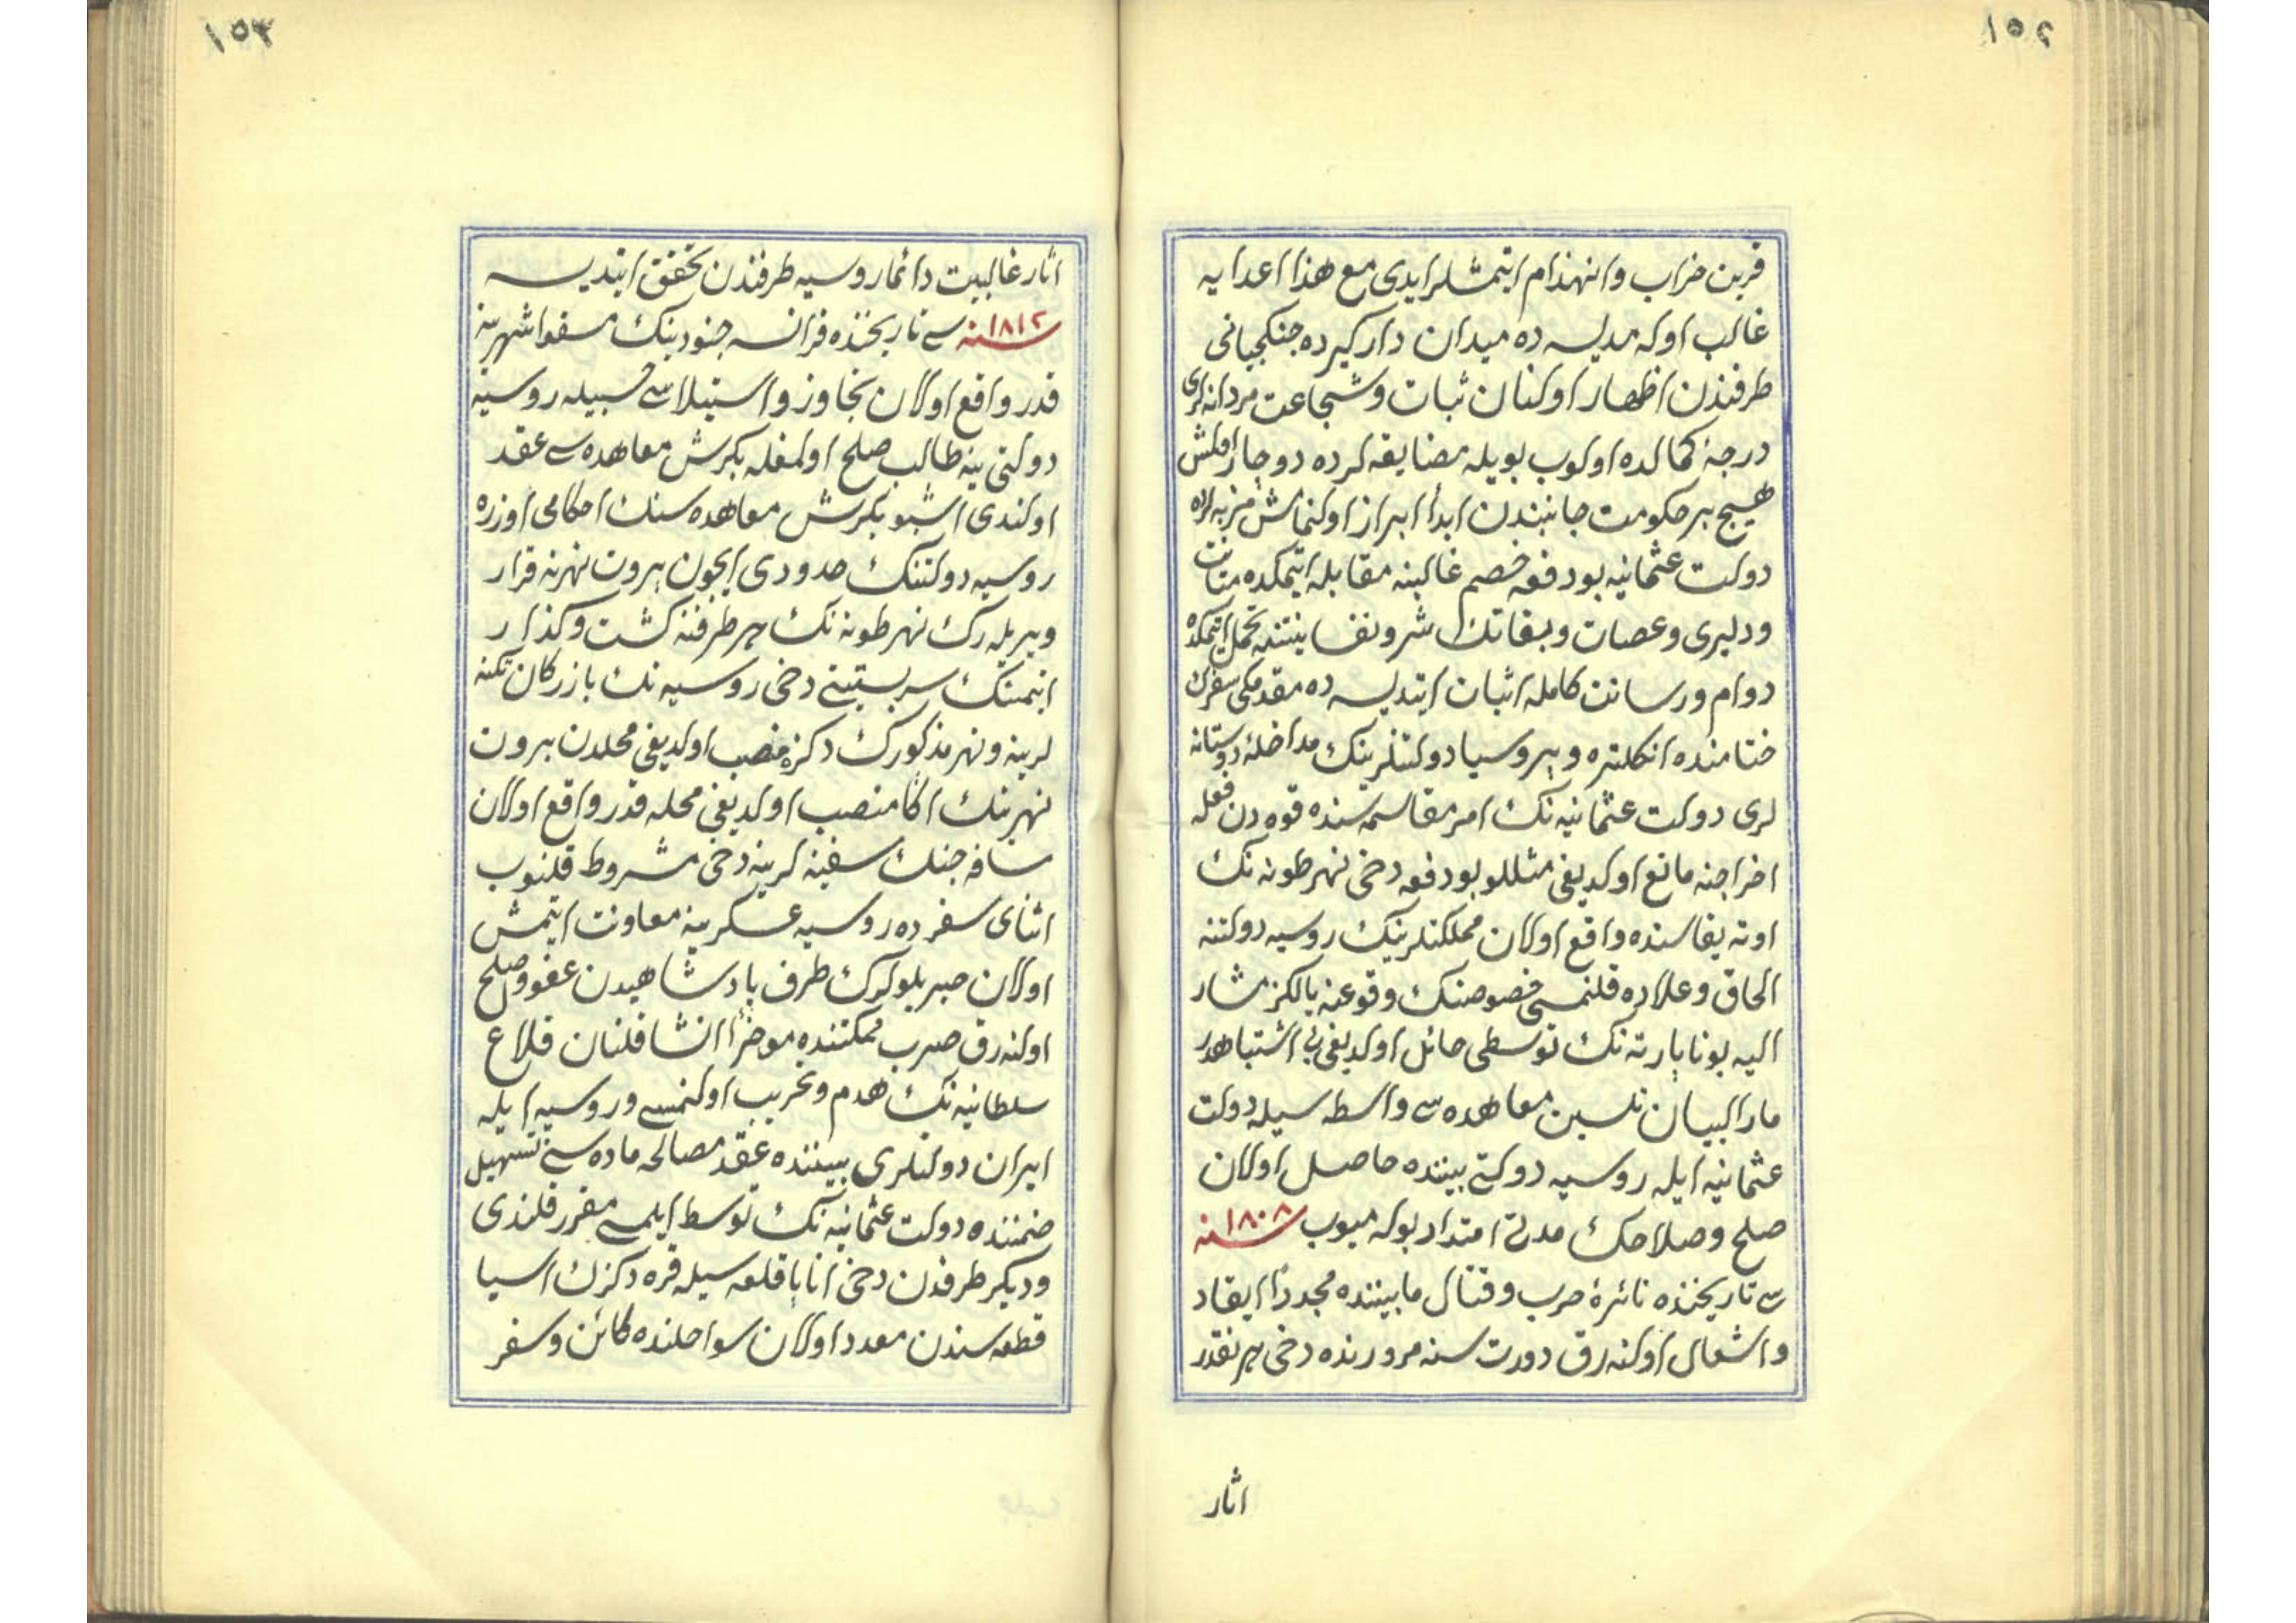 ١٥٢
قرین خراب وانهذام ایتمشلر ایدی مع هذا اعدایه
غالب اوله مدیسه ده میدان دار كیرده جنكجیانی
طرفندن اظهار اولنان ثبات وشجاعت مردانه لری
درجۀ كمالده اولوب بویله مضایقه لرده دوچار اولمش
هیچ بر حكومت جانبندن ابداً ابراز اولنمامش مرتبه لرده
دولت عثمانیه بو دفعه خصم غالبنه مقابله ایتمكده متانت
ودلیری وعصات وبغاتك شر ونفسانیتنه تحمل ایتمكده
دوام ورسانت كامله اثبات ایتدیسه ده مقدمكی سفرك
ختامنده انكلتره وپروسیا دولتلرینك مداخلۀ دوستانه
لری دولت عثمانیه نك امر مقاسمه سنده قوه دن فعله
اخراجنه مانع اولدیغی مثللو بو دفعه دخی نهر طونه نك
اوته یقاسنده واقع اولان مملكتلرینك روسیه دولتنه
الحاق وعلاوه قلنمسی خصوصنك وقوعنه یالكز مشار
الیه بوناپارته نك توسطی حائل اولدیغی بی اشتباهدر
مار البیان تلسیت معاهده سی واسطه سیله دولت
عثمانیه ایله روسیه دولتی بیننده حاصل اولان
صلح وصلاحك مدتی امتداد بوله میوب ١٨٠٨ سنه
سی تاریخنده نائرۀ حرب وقتال مابیننده مجدداً ایقاد
واشعال اولنه رق دورت سنه مرورنده دخی هر نقدر
اثار
١٥٣
اثار غالبیت دائما روسیه طرفندن تحقق ایتدیسه
١٨١٢ سنه سی تاریخنده فرانسه جنودینك مسقوا شهرینه
قدر واقع اولان تجاوز واستیلاسی حسبیله روسیه
دولتی ینه طالب صلح اولمغله بكرش معاهده سی عقد
اولندی اشبو بكرش معاهده سنك احكامی اوزره
روسیه دولتنك حدودی ایچون پروت نهرنه قرار
ویریله رك نهر طونه نك هر طرفنه كشت وكذار
ایتمنك سربستیتی دخی روسیه نك بازركان تكنه
لرینه ونهر مذكورك دكزه منصب اولدیغی محلدن پروت
نهرینك اكا منصب اولدیغی محله قدر واقع اولان
مسافه جنك سفینه لرینه دخی مشروط قلنوب
اثنای سفرده روسیه عسكرینه معاونت ایتمش
اولان صربلولرك طرف پادشاهیدن عفو وصلح
اولنه رق صرب مملكتنده موخراً انشا قلنان قلاع
سلطانیه نك هدم وتخریب اولنمسی وروسیه ایله
ایران دولتلری بیننده عقد مصالحه ماده سنی تسهیل
ضمننده دولت عثمانیه نك توسط ایلمسی مقرر قلندی
ودیكر طرفدن دخی اناپا قلعه سیله قره دكزك اسیا
قطعه سندن معدود اولان سواحلنده كائن وسفر